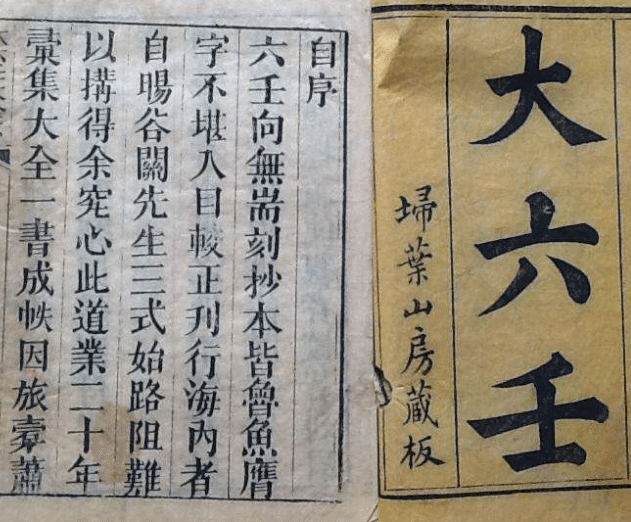 大六壬
埽葉山房藏板
自序
六壬向無耑刻抄本皆魯魚膺
字不堪入目較正刊行海內者
自暘谷關先生三式始路阻難
以搆得余究心此道業二十年
彚集大全一書成帙因旅橐蕭